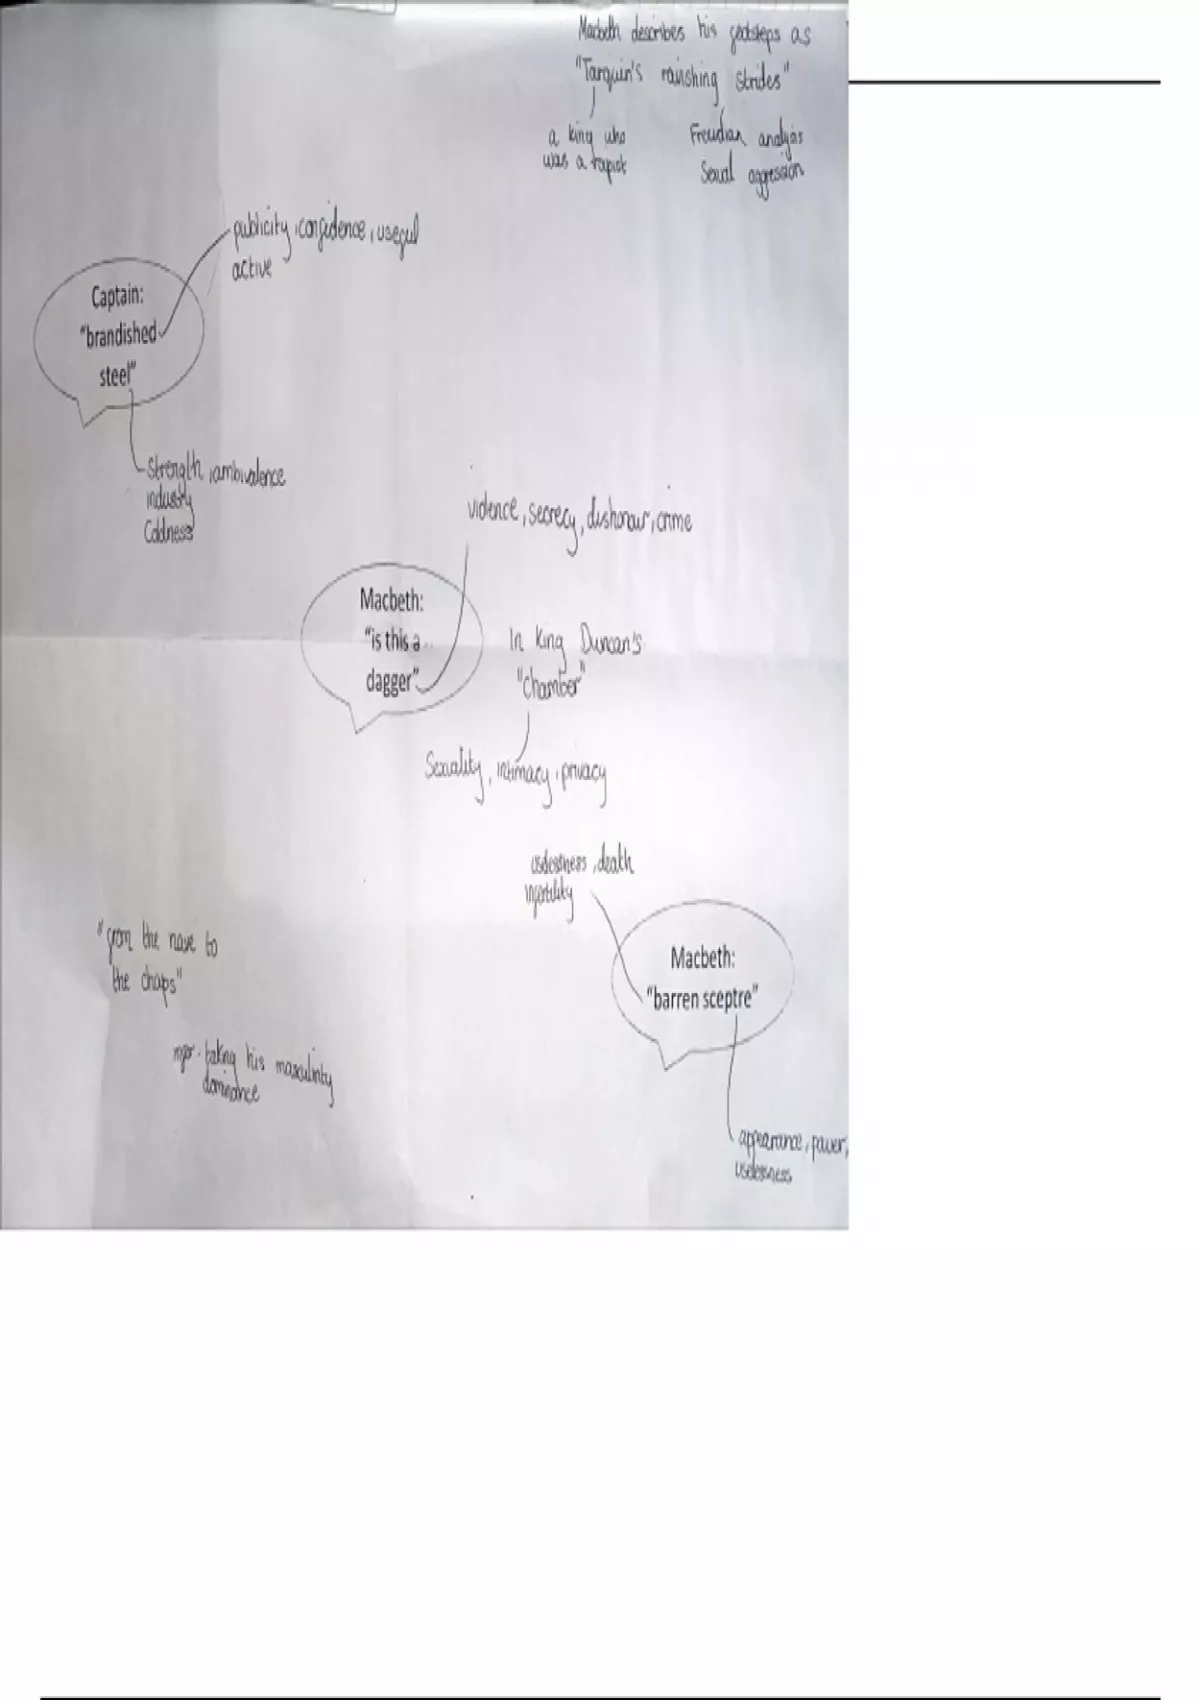 Macbeth describes his footsteps as
"Tarquin's ravishing strides"
a king who
was a rapist
Freudian analysis
Sexual aggression
publicity, confidence, useful
active
Captain:
"brandished
steel"
Strength, ambivalence
industry
Coldness
violence, secrecy, dishonour, crime
Macbeth:
"is this a
dagger"
In King Duncan's
"chamber"
Sexuality, intimacy, privacy
uselessness, death
infertility
Macbeth:
"barren sceptre"
"from the nave to
the chaps"
taking his masculinity
dominance
appearance, power,
uselessness